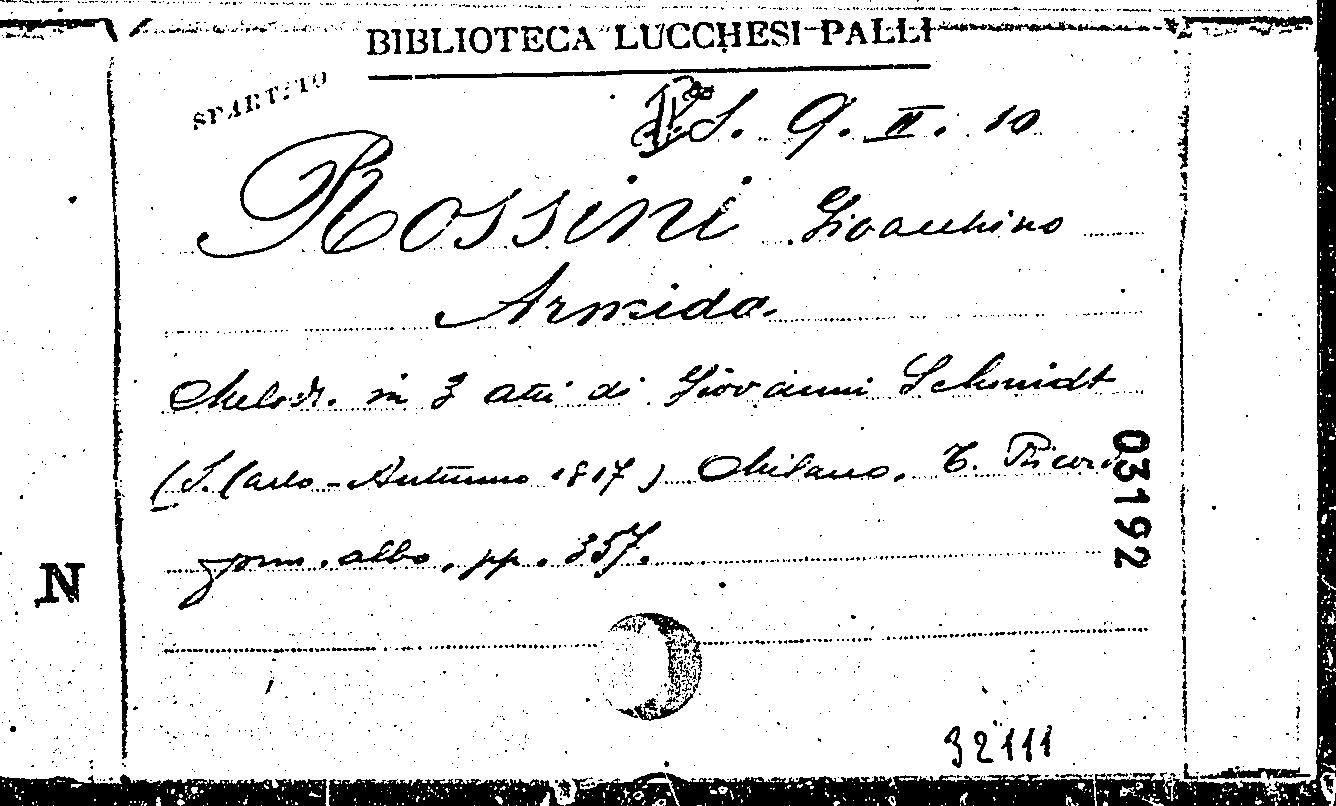 BIBLIOTECA LUCCHESI-PALLI
SPARTITO
S. 9. II. 10
Rossini Gioacchino
Armida
Melodr. in 3 atti di Giovanni Schmidt
(S. Carlo - Autunno 1817) Milano, T. Ricordi
form. albo, pp. 357.
03192
N
32111